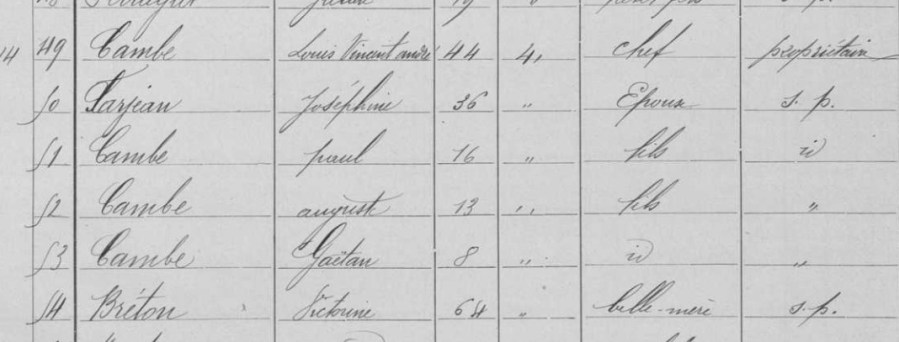 19 s. p.
14 49 Cambe Louis Vincent andré 44 4, chef propriétain
50 Tarjean Joséphine 36 " Epoux s. p.
51 Cambe paul 16 " fils id
52 Cambe august 13 " fils "
53 Cambe Gaëtan 8 " id "
54 Bréton Victorine 64 " belle-mère s. p.